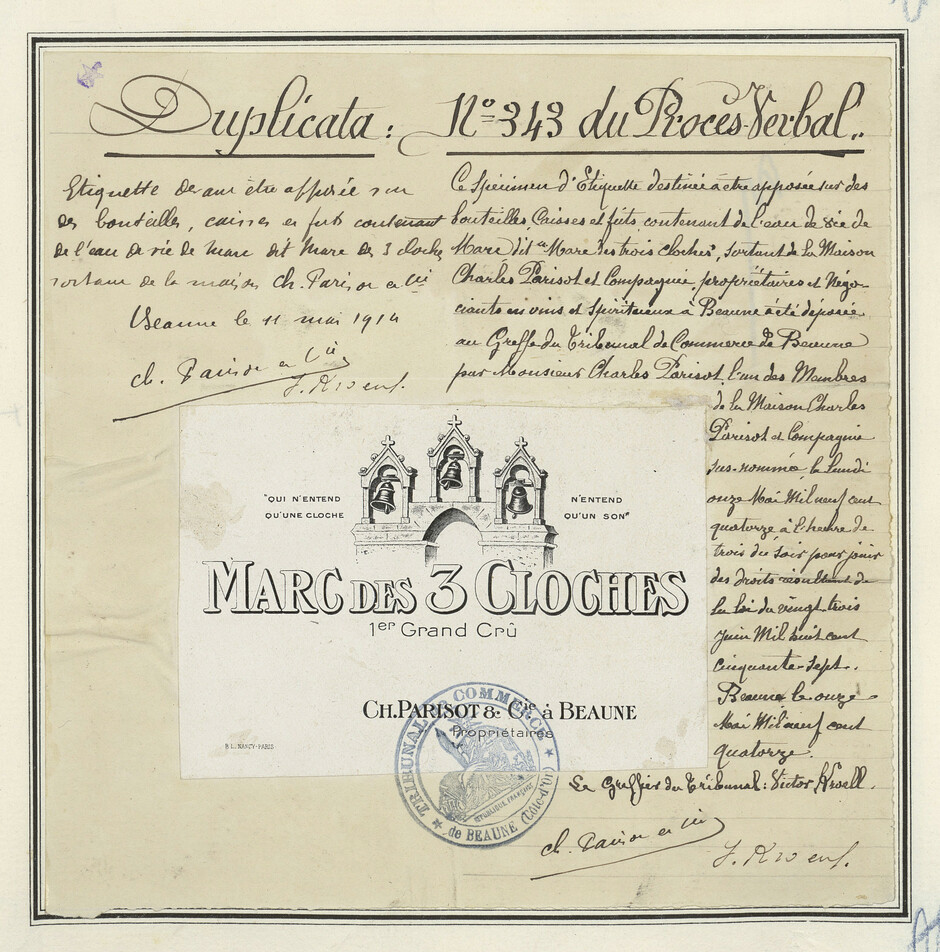 Duplicata : Nº 343 du Procès-Verbal..
Etiquette devant être apposée sur
des bouteilles, caisses et fûts contenant
de l'eau de vie de marc dit Marc de 3 cloches
sortant de la maison Ch. Parisot et Cie
Beaune le 11 mai 1914
ch. Parisot et Cie
Ce Spécimen d'Etiquette destinée à être apposée sur des
bouteilles, Caisses et fûts, contenant de l'eau de vie de
Marc dit "Marc des trois cloches", sortant de la Maison
Charles Parisot et Compagnie, propriétaires et Négo-
ciants en vins et Spiritueux à Beaune a été déposée
au Greffe du Tribunal de Commerce de Beaune
par Monsieur Charles Parisot, l'un des Membres
de la Maison Charles
Parisot et Compagnie
sus-nommé le Lundi
onze Mai Mil neuf cent
quatorze à l'heure de
trois du soir pour jouir
des droits résultant de
la loi du vingt-trois
Juin Mil huit cent
cinquante-sept.
Beaune le onze
Mai Mil neuf cent
quatorze.
Le Greffier du Tribunal : Victor Kroell.
ch. Parisot et Cie
"QUI N'ENTEND
QU'UNE CLOCHE
N'ENTEND
QU'UN SON"
MARC DES 3 CLOCHES
1er Grand Crû
CH. PARISOT & Cie à BEAUNE
Propriétaires
B L. NANCY-PARIS
TRIBUNAL DE COMMERCE
de BEAUNE (Côte-d'Or)
RÉPUBLIQUE FRANÇAISE